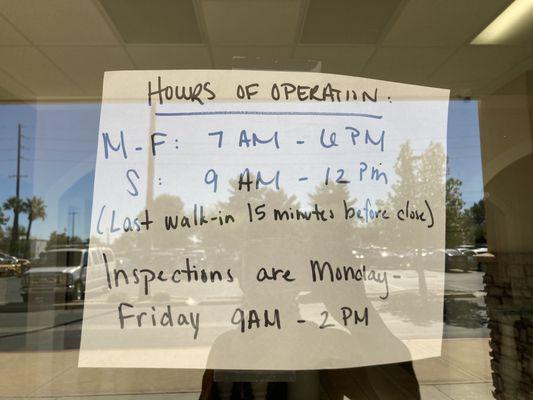 HOURS OF OPERATION:
M-F: 7 AM - 6 PM
S: 9 AM - 12 PM
(Last walk-in 15 minutes before close)
Inspections are Monday-
Friday 9AM - 2 PM